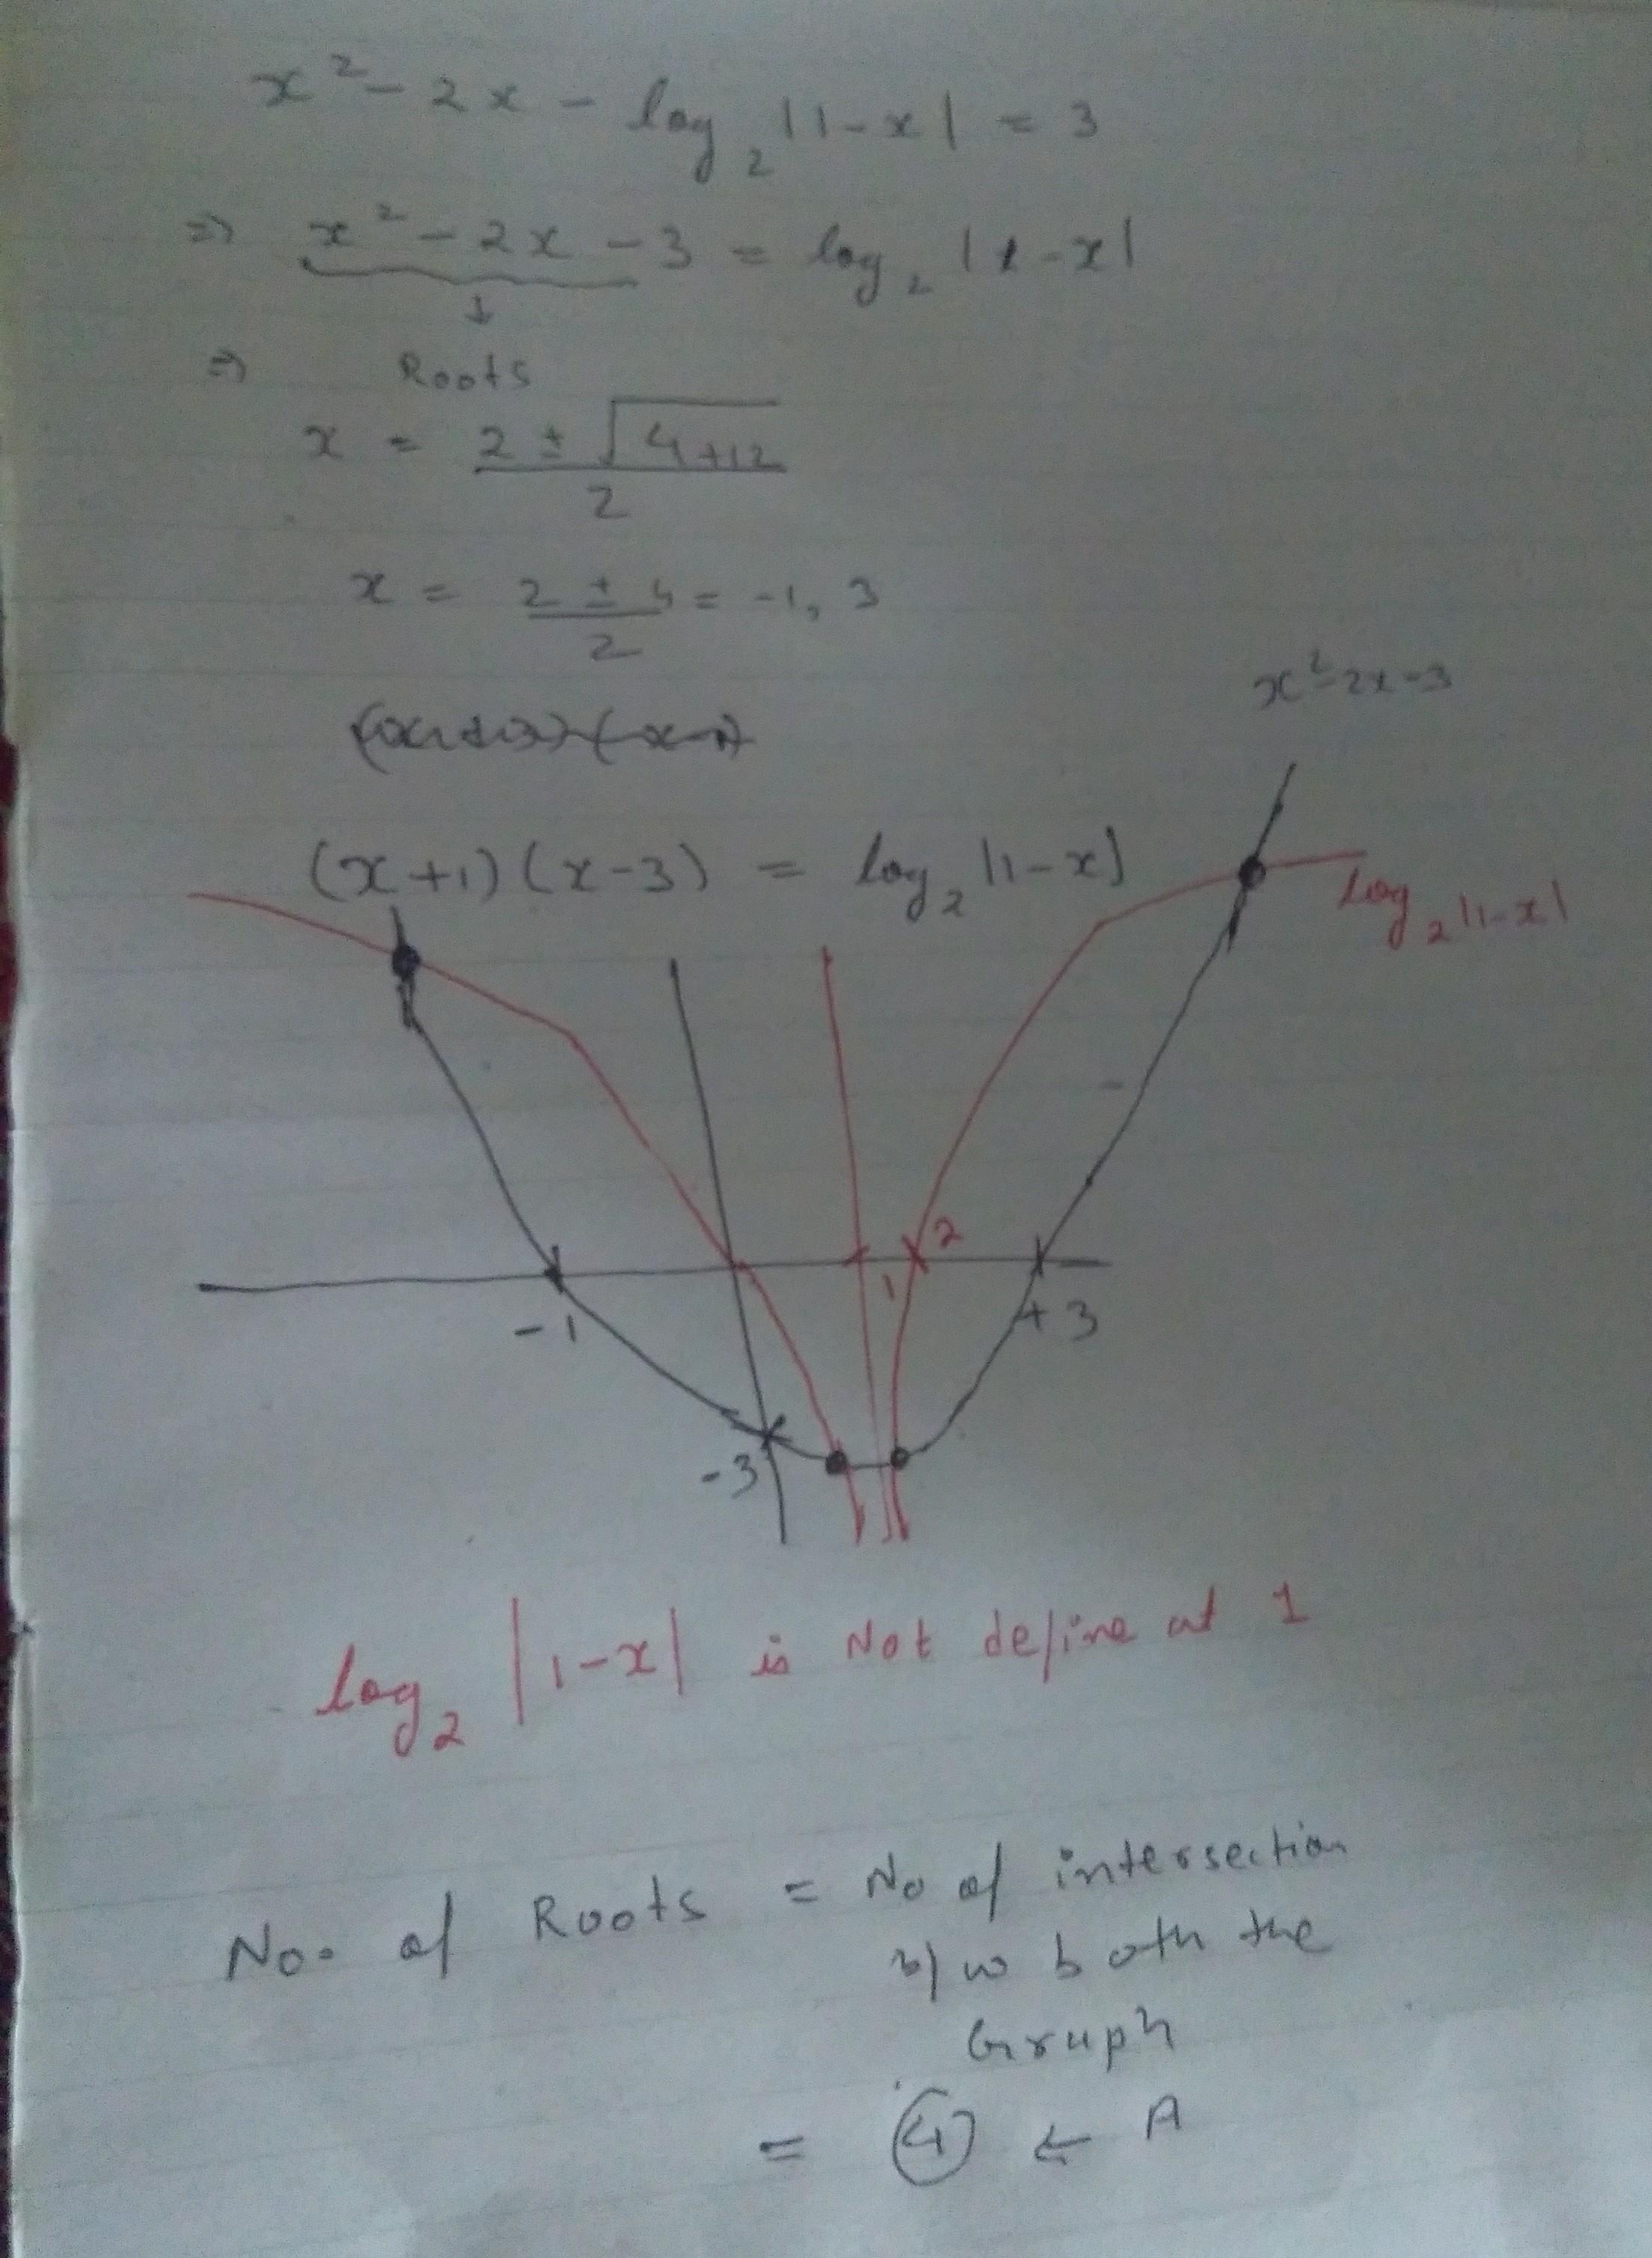 x² - 2x - log₂ |1-x| = 3
⇒ x² - 2x - 3 = log₂ |1-x|
↓
⇒ Roots
x = (2 ± √(4+12))/2
x = (2 ± 4)/2 = -1, 3
x²-2x-3
(x+1)(x-3) = log₂ |1-x|
log₂|1-x|
2
1
-1
+3
-3
log₂ |1-x| is Not define at 1
No. of Roots = No of intersection
b/w both the
Graph
= 4 ← A